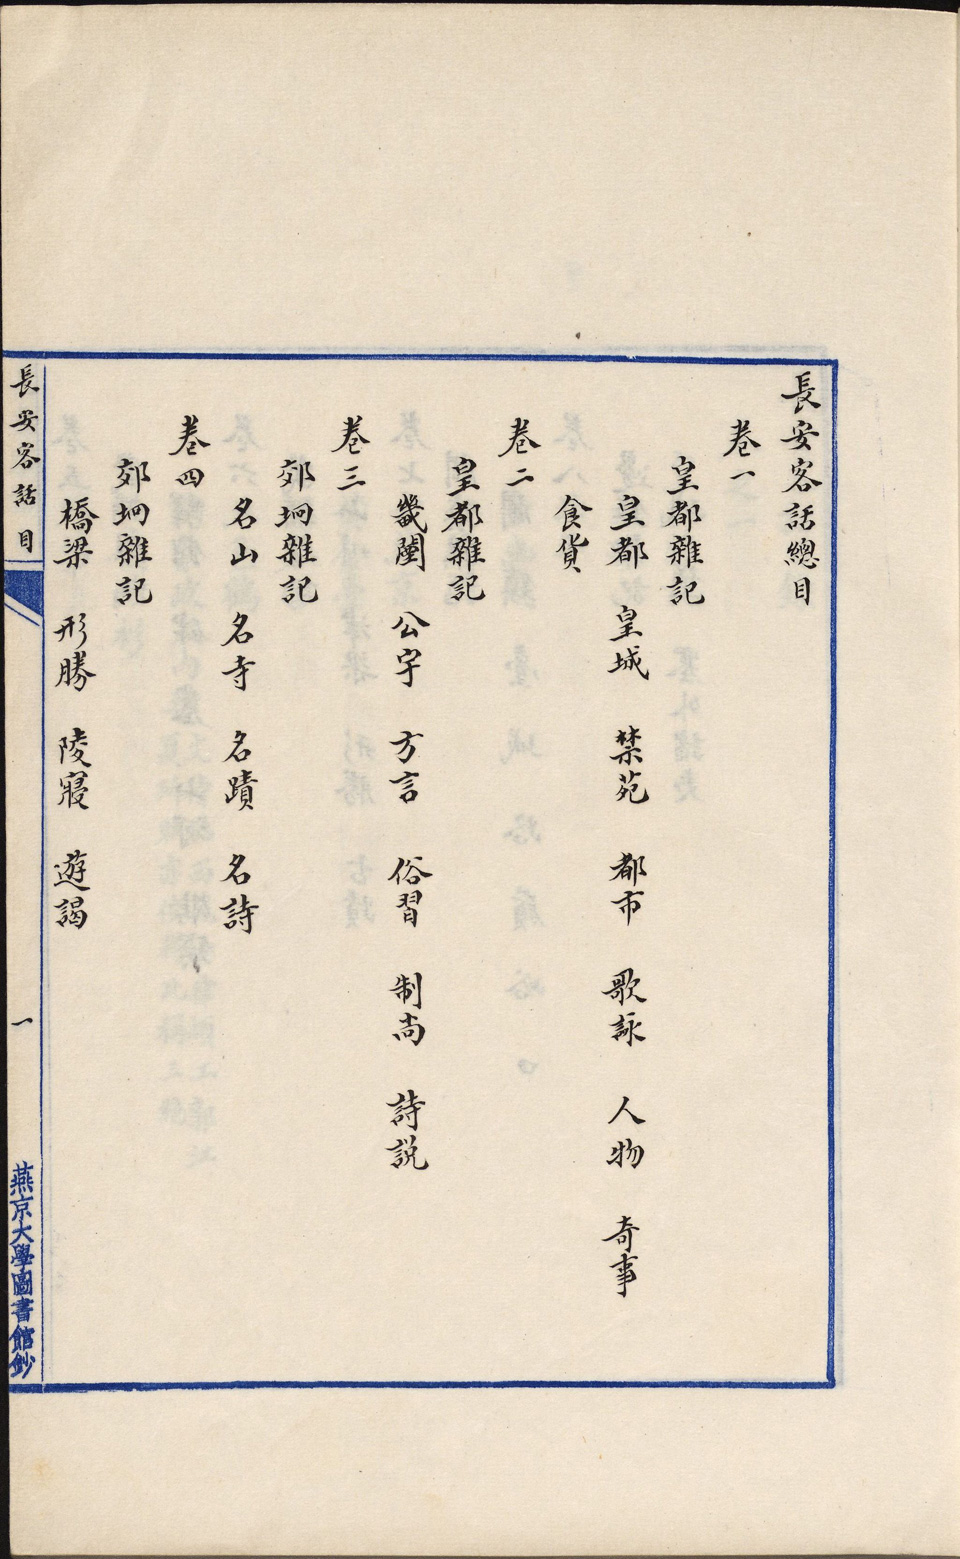 長安客話總目
卷一
皇都雜記
皇都　皇城　禁苑　都市　歌詠　人物　奇事
食貨
卷二
皇都雜記
畿闉　公宇　方言　俗習　制尚　詩説
卷三
郊坰雜記
名山　名寺　名蹟　名詩
卷四
郊坰雜記
橋梁　形勝　陵寢　遊謁
長安客話　目
一
燕京大學圖書館鈔